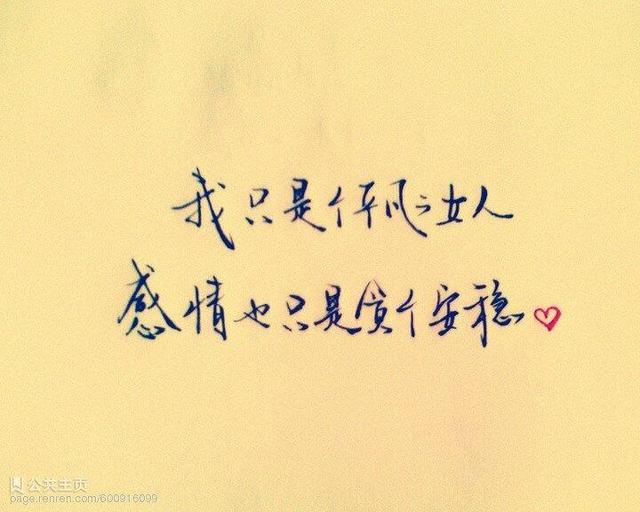 我只是个平凡之女人
感情也只是贪个安稳
公共主页
page.renren.com/600916099